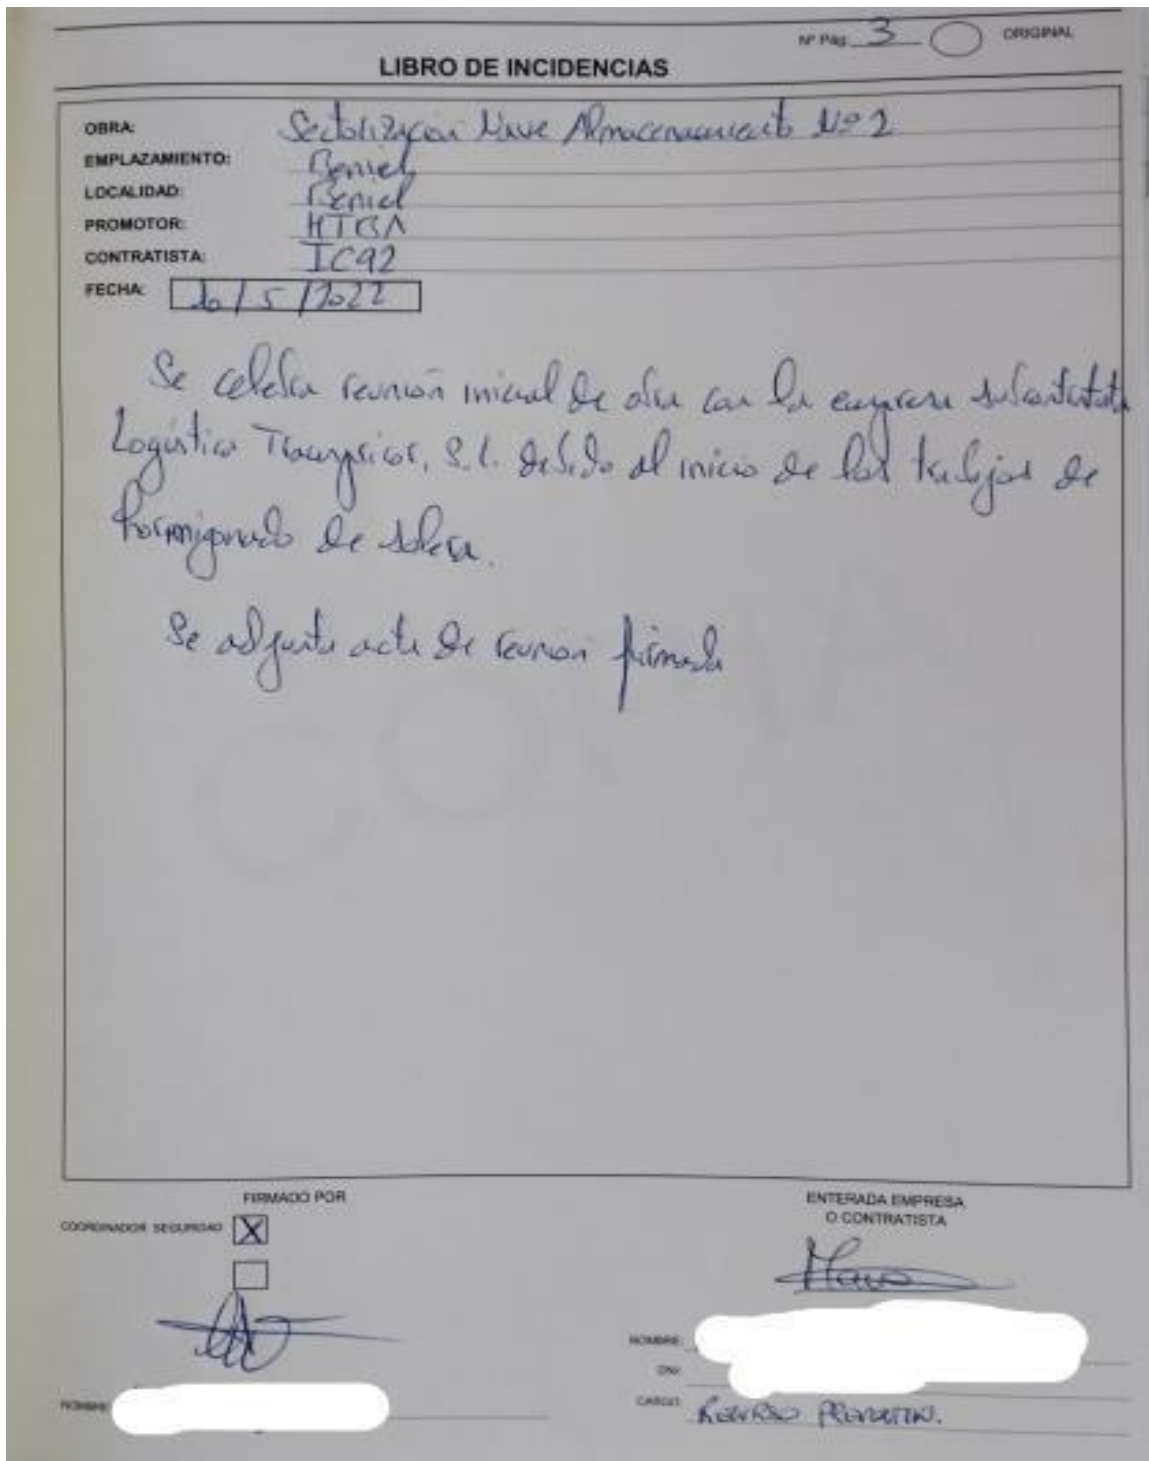 Nº Pág. 3 ORIGINAL
LIBRO DE INCIDENCIAS
OBRA: Sectorización Nave Almacenamiento Nº 2
EMPLAZAMIENTO: Beniel
LOCALIDAD: Beniel
PROMOTOR:
CONTRATISTA: IC92
FECHA: /5/2022
Se celebra reunión inicial de obra con la empresa subcontratista
Logística S.L. debido al inicio de los trabajos de
hormigonado de solera.
Se adjunta acta de reunión firmada
COPIA
FIRMADO POR
COORDINADOR SEGURIDAD X
ENTERADA EMPRESA
O CONTRATISTA
NOMBRE:
DNI:
NOMBRE:
CARGO: RECURSO PREVENTIVO.